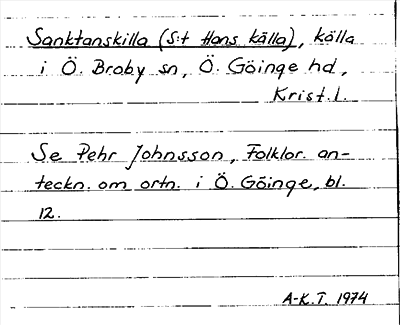 Sanktanskilla (S:t Hans källa), källa
i Ö. Broby sn, Ö. Göinge hd,
Krist. l.
Se Pehr Johnsson, Folklor. an-
teckn. om ortn. i Ö. Göinge, bl.
12.
A-K.T. 1974